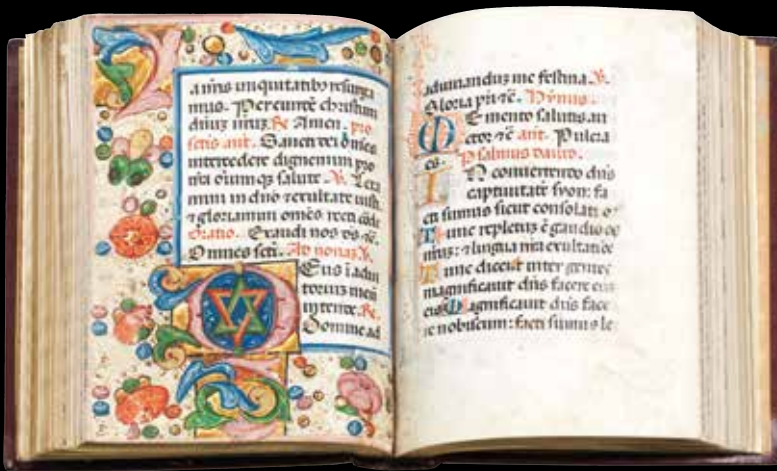 a nris iniquitatibus resurga
mus. Per eundē christum
dnūz nrūz. ℟ Amen. pro
setis ant. Sancti dei ōmēs
intercedere dignemini pro
nr̄a oīum q; salute. ℣. Leta
mini in dn̄o ⁊ exultate iusti.
⁊ gloriamini omēs recti cōde
Oratio. Exaudi nos ds ⁊c̄.
Omnes sc̄ti. Ad nonaz ℣.
Deus ī adiu
toriuz meū
intende. ℟.
Domine ad
adiuuanduz me festina. ℣.
Gloria pr̄i ⁊c̄. Hymnus.
Memento salutis au
ctor ⁊c̄ ant. Pulcra
es. Psalmus dauid.
In conuertendo dn̄s
captiuitatē syon: fa
cti sumus sicut consolati
Tunc repletuz ē gaudio os
nr̄uz: ⁊ lingua nr̄a exultatiōe
Tunc dicent inter gentes
magnificauit dn̄s facere cuz
eis Magnificauit dn̄s face
re nobiscum: facti sumus le